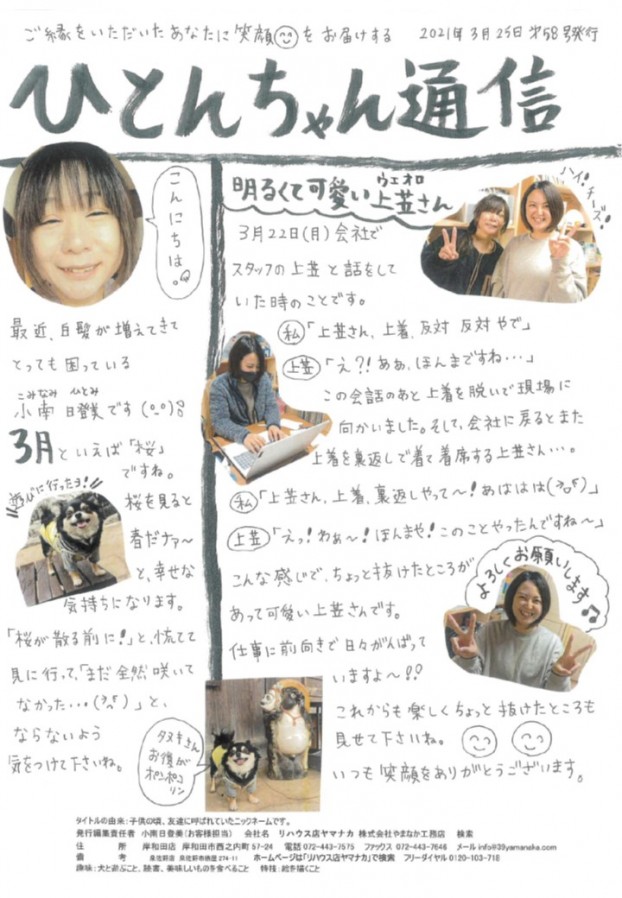 ご縁をいただいたあなたに笑顔をお届けする
2021年3月25日 第58号発行
ひとんちゃん通信
こんにちは。
最近、白髪が増えてきて
とっても困っている
こみなみ ひとみ
小南 日登美です(o_o)
3月といえば「桜」
ですね。
遊びに行ったヨ!
桜を見ると
春だナァ〜
と、幸せな
気持ちになります。
「桜が散る前に!」と、慌てて
見に行って、「まだ全然咲いて
なかった…」と、
ならないよう
気をつけて下さいね。
明るくて可愛い上荳さん
ウエオロ
ハイ!チーズ!
3月22日(月)会社で
スタッフの上荳と話をして
いた時のことです。
私「上荳さん、上着、反対 反対やで」
上荳「え?!ああ、ほんまですね…」
この会話のあと上着を脱いで現場に
向かいました。そして、会社に戻るとまた
上着を裏返しで着て着席する上荳さん…。
私「上荳さん、上着、裏返しやって〜!あははは」
上荳「えっ!わぁ〜!ほんまや!このことやったんですね〜」
こんな感じで、ちょっと抜けたところが
あって可愛い上荳さんです。
仕事に前向きで日々がんばって
いますよ〜!!
よろしくお願いします♫
これからも楽しくちょっと抜けたところも
見せて下さいね。
いつも笑顔をありがとうございます。
タヌキさん
お腹が
ポンポコ
リン
タイトルの由来:子供の頃、友達に呼ばれていたニックネームです。
発行編集責任者 小南日登美(お客様担当) 会社名 リハウス店ヤマナカ 株式会社やまなか工務店 検索
住 所 岸和田店 岸和田市西之内町 57-24 電話 072-443-7575 ファックス 072-443-7646 メール info@39yamanaka.com
備 考 泉佐野店 泉佐野市鶴原 274-11 ホームページは「リハウス店ヤマナカ」で検索 フリーダイヤル 0120-103-718
趣味:犬と遊ぶこと、読書、美味しいものを食べること 特技:絵を描くこと